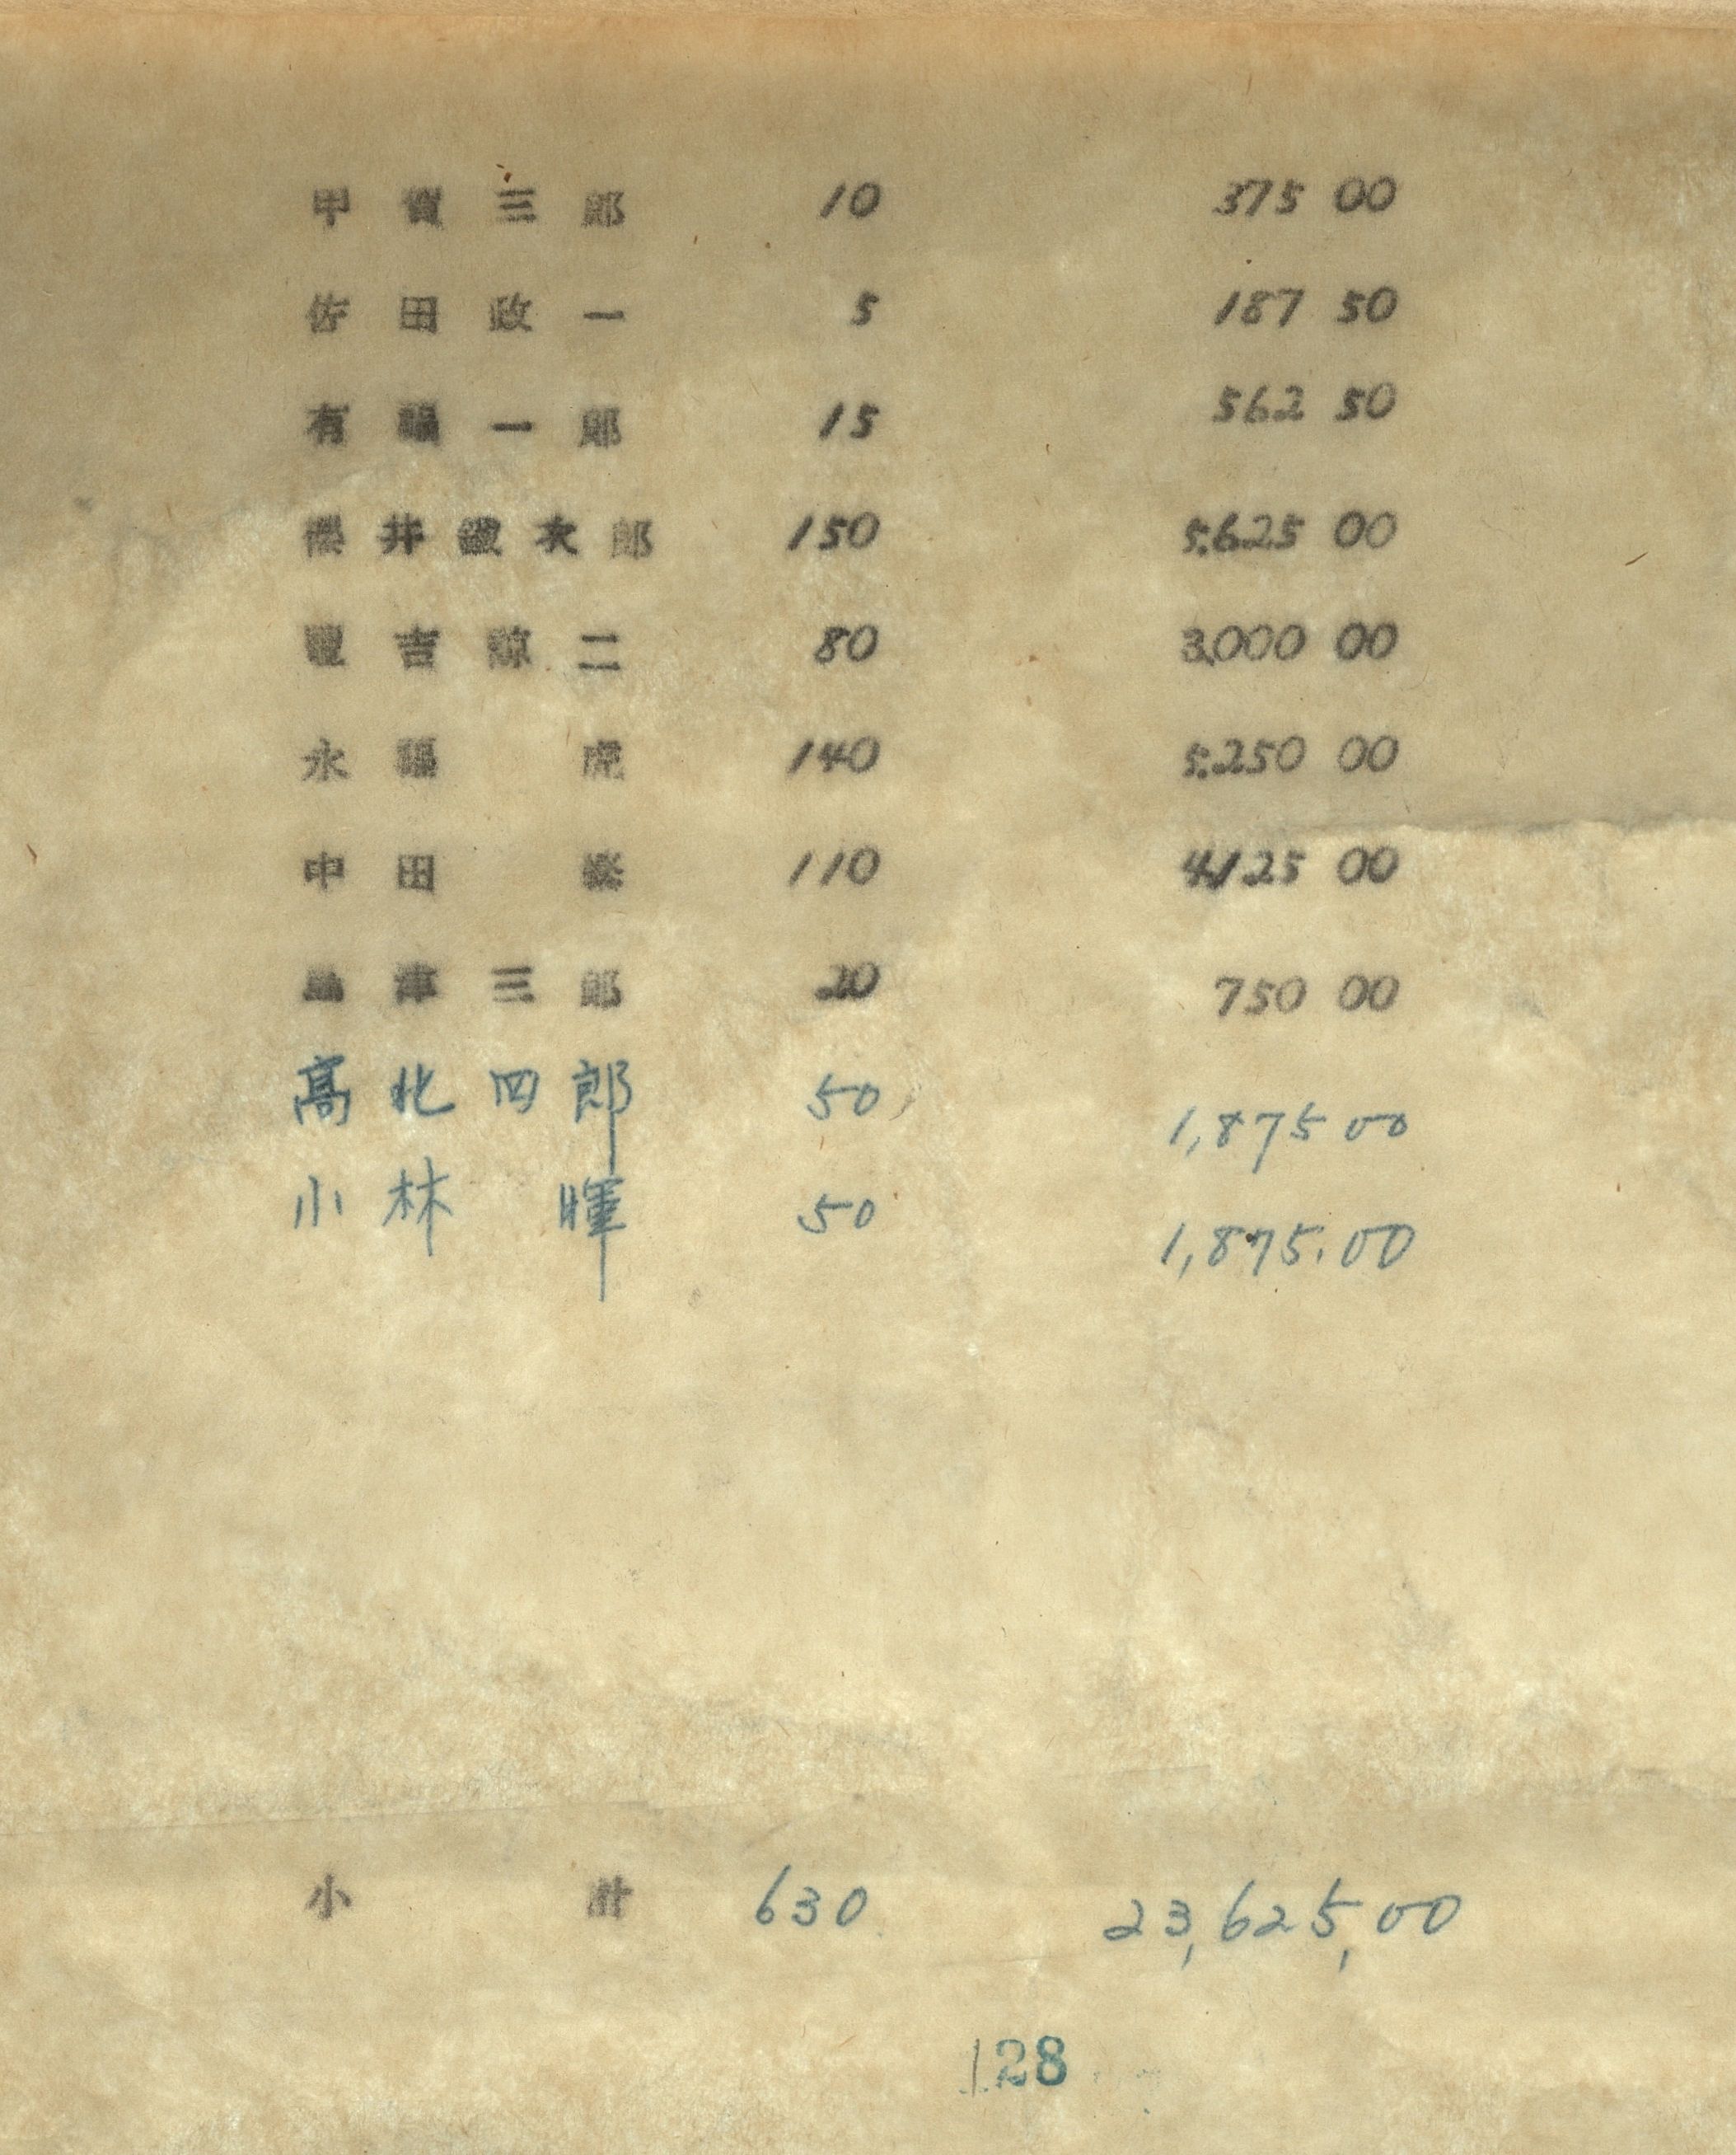 甲賀三郎 10 375 00
佐田政一 5 187 50
有福一郎 15 562 50
櫻井 次郎 150 5,625 00
豊吉 二 80 3,000 00
永福 虎 140 5,250 00
中田 110 4,125 00
島津三郎 20 750 00
髙北四郎 50 1,875 00
小林 暉 50 1,875.00
小計 630 23,625,00
128